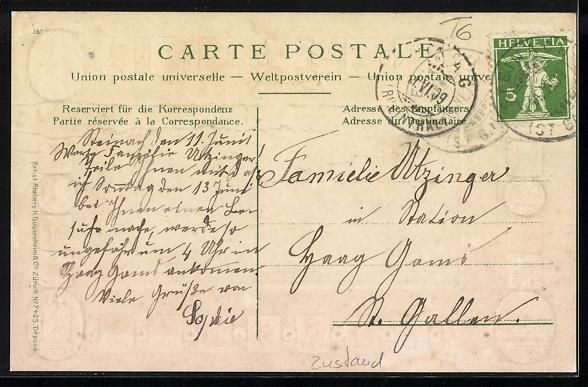 161
T6
CARTE POSTALE
HELVETIA
5
Union postale universelle — Weltpostverein — Union postale unive
HAAG
VI.09
(RHEINTHAL)
(ST G
Reserviert für die Korrespondenz
Partie réservée à la Correspondance.
Adresse des Empfängers
Adresse du Destinataire
Steinach den 11. Juni
Werte Familie Utzinger!
Teile Ihnen mit das
ich Sonntag den 13 Juni
bei Ihnen einen Be-
such mache, werde so
ungefähr um 4 Uhr in
Haag Gams ankommen.
Viele Grüße von
Sophie
Familie Utzinger
in Station
Haag Gams
St. Gallen.
Artist. Ateliers H. Guggenheim & Co. Zürich No 7425. Déposé
Zustand